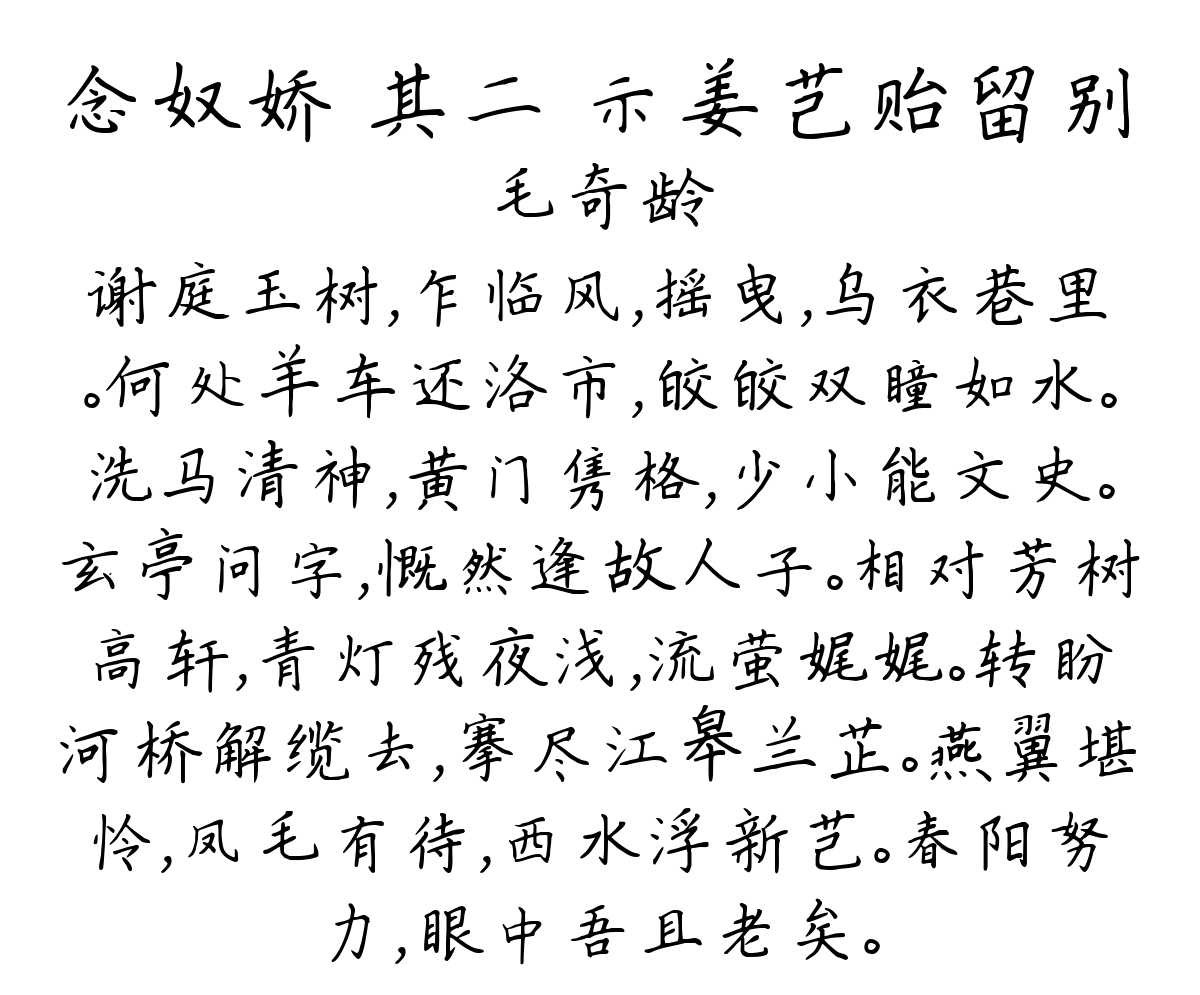 念奴娇 其二 示姜芑贻留别
毛奇龄
谢庭玉树,乍临风,摇曳,乌衣巷里
。何处羊车还洛市,皎皎双瞳如水。
洗马清神,黄门隽格,少小能文史。
玄亭问字,慨然逢故人子。相对芳树
高轩,青灯残夜浅,流萤娓娓。转盼
河桥解缆去,搴尽江皋兰芷。燕翼堪
怜,凤毛有待,西水浮新芑。春阳努
力,眼中吾且老矣。